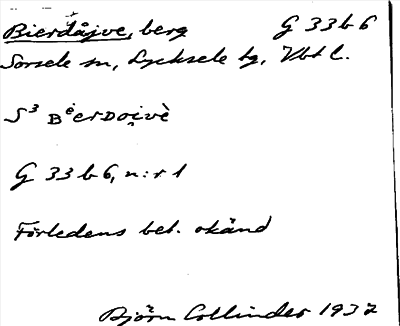 Bierdåjve, berg G 33 b 6
Sorsele sn, Lycksele tg, Vbt l.
S³ BėerDo̭ivè
G 33 b 6, n:r 1
Förledens bet. okänd
Björn Collinder 1937